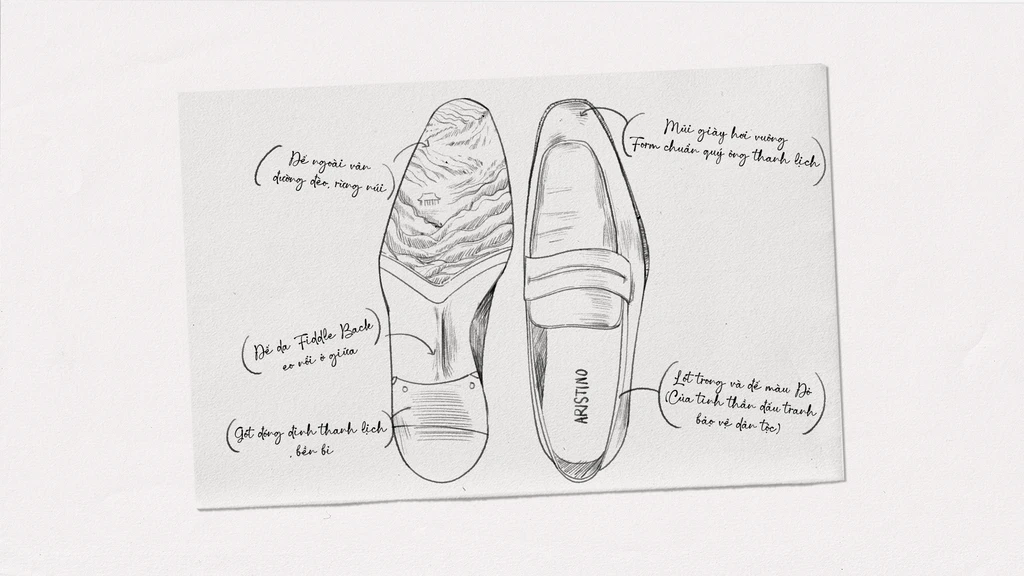 Đế ngoài vân
đường đèo, rừng núi
Đế da Fiddle Back
eo nổi ở giữa
Gót đóng đinh thanh lịch
, bền bỉ
Mũi giày hơi vuông
Form chuẩn quý ông thanh lịch
ARISTINO
Lót trong và đế màu Đỏ
(Của tinh thần đấu tranh
bảo vệ dân tộc)